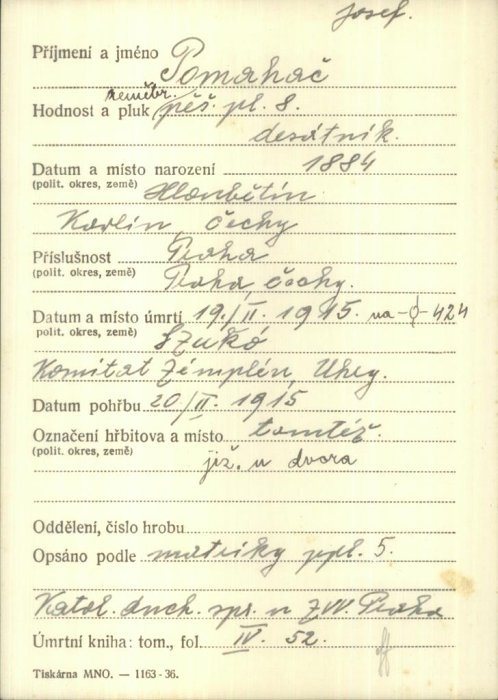 Josef.
Příjmení a jméno Pomahač
zeměbr.
Hodnost a pluk pěš. pl. 8.
desátník.
Datum a místo narození 1884
(polit. okres, země) Hloubětín
Karlín, Čechy
Příslušnost Praha
(polit. okres, země) Praha Čechy.
Datum a místo úmrtí 19./II. 1915. na 424
polit. okres, země) Szukó
Komitat Zemplén, Uhry.
Datum pohřbu 20/II. 1915
Označení hřbitova a místo tomtéž.
(polit. okres, země) již. u dvora
Oddělení, číslo hrobu
Opsáno podle matriky ppl. 5.
Katol. duch. spr. u ZVV. Praha
Úmrtní kniha: tom., fol. IV. 52.
Tiskárna MNO. — 1163-36.